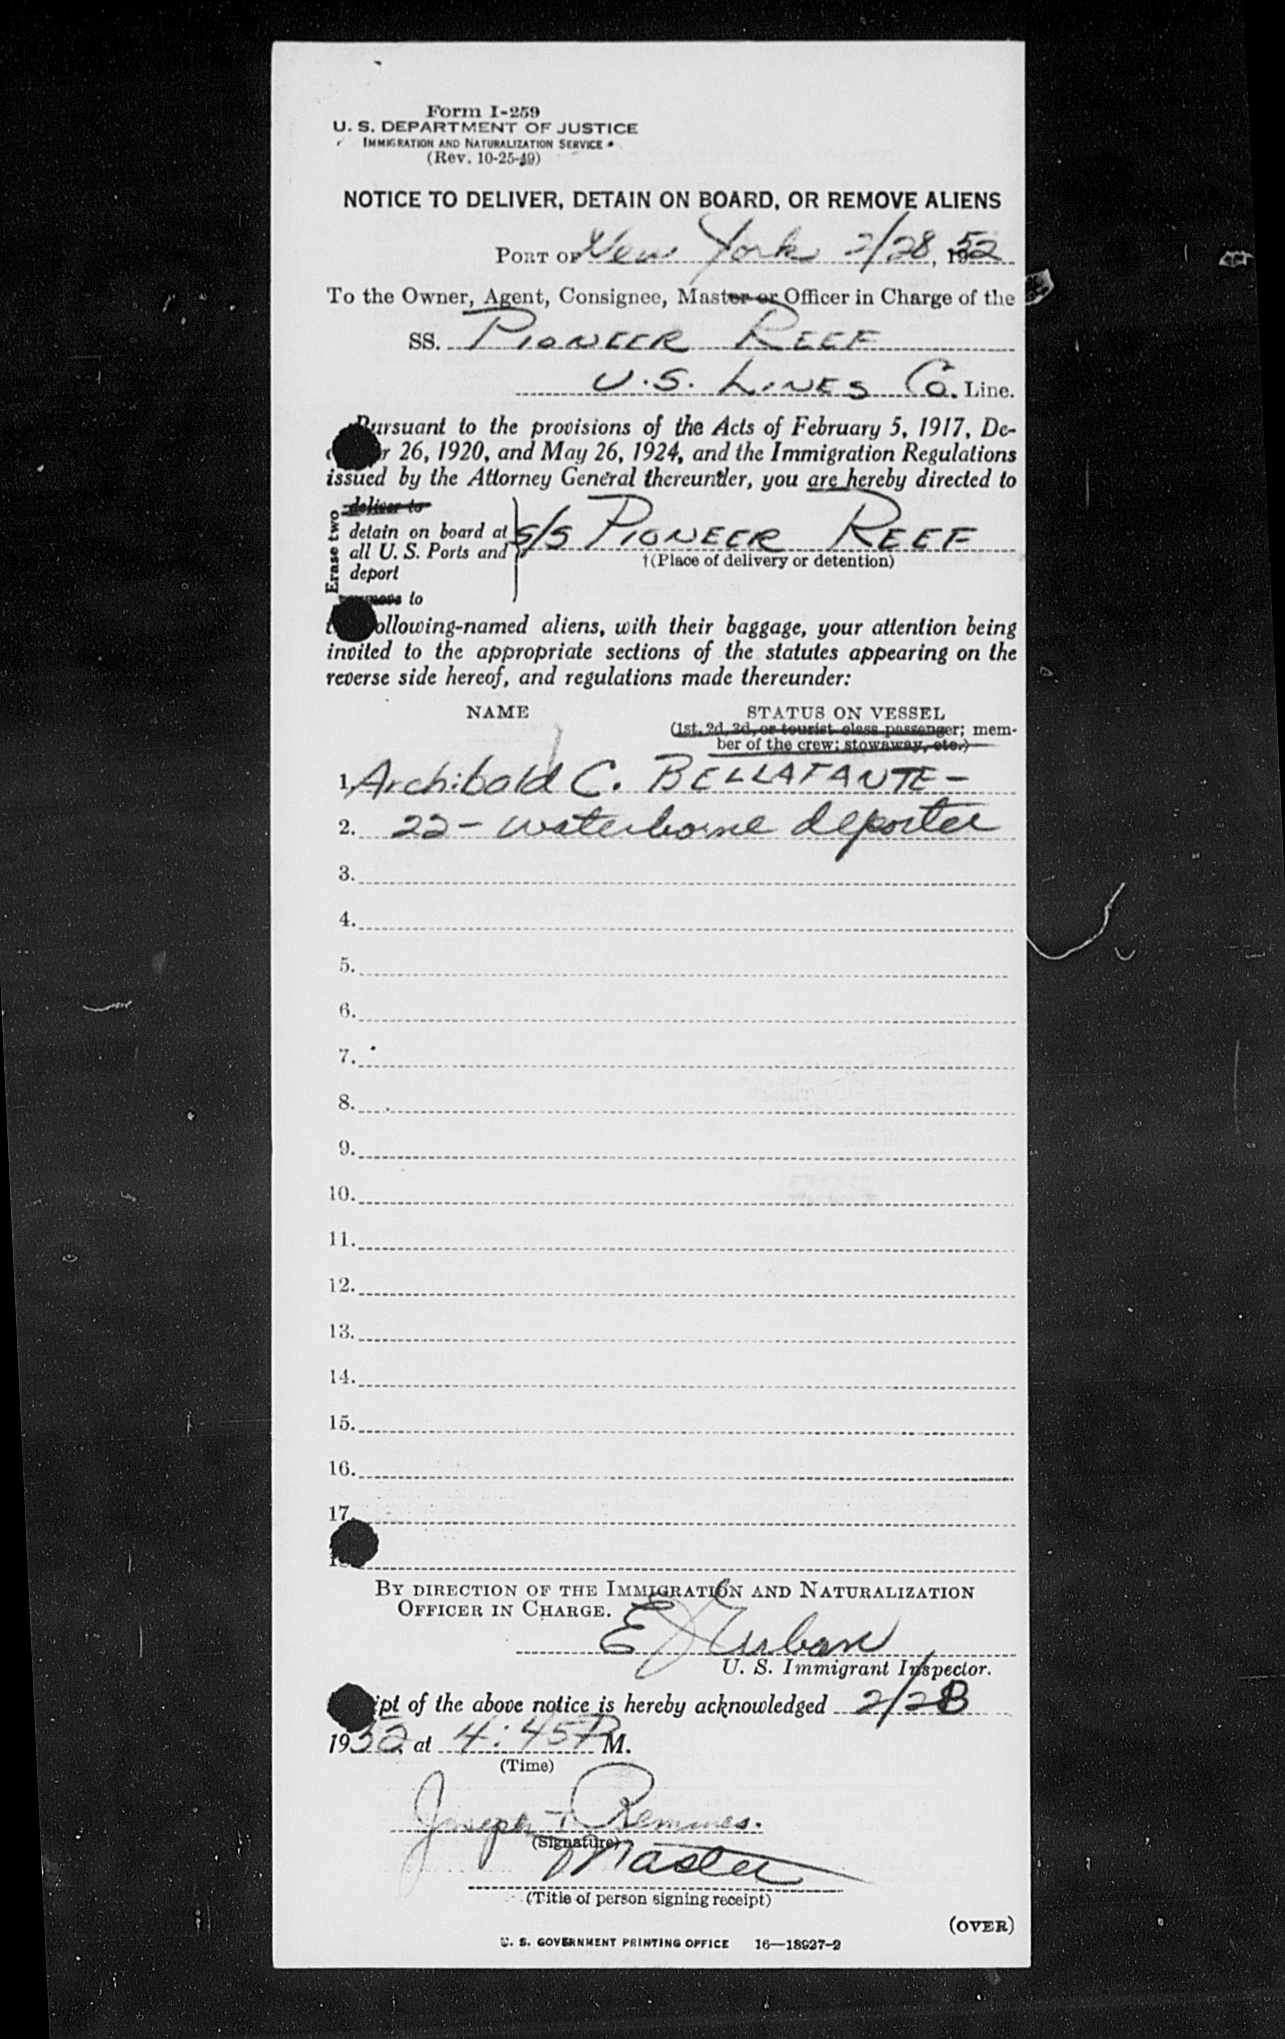 Form I-259
U. S. DEPARTMENT OF JUSTICE
IMMIGRATION AND NATURALIZATION SERVICE
(Rev. 10-25-49)
NOTICE TO DELIVER, DETAIN ON BOARD, OR REMOVE ALIENS
PORT OF New York 2/28, 1952
To the Owner, Agent, Consignee, Master or Officer in Charge of the
SS. PIONEER REEF
U.S. LINES Co. Line.
Pursuant to the provisions of the Acts of February 5, 1917, De-
r 26, 1920, and May 26, 1924, and the Immigration Regulations
issued by the Attorney General thereunder, you are hereby directed to
Erase two
deliver to
detain on board at
all U. S. Ports and
deport
remove to
S/S PIONEER REEF
†(Place of delivery or detention)
following-named aliens, with their baggage, your attention being
invited to the appropriate sections of the statutes appearing on the
reverse side hereof, and regulations made thereunder:
NAME STATUS ON VESSEL
(1st, 2d, 3d, or tourist class passenger; mem-
ber of the crew; stowaway, etc.)
1. Archibald C. BELLAFANTE -
2. 22 - waterborne deportee
3.
4.
5.
6.
7.
8.
9.
10.
11.
12.
13.
14.
15.
16.
17.
BY DIRECTION OF THE IMMIGRATION AND NATURALIZATION
OFFICER IN CHARGE.
E J Urban
U. S. Immigrant Inspector.
ipt of the above notice is hereby acknowledged 2/28
1952 at 4:45 P M.
(Time)
Joseph
(Signature)
Master
(Title of person signing receipt)
(OVER)
U. S. GOVERNMENT PRINTING OFFICE 16—18927-2